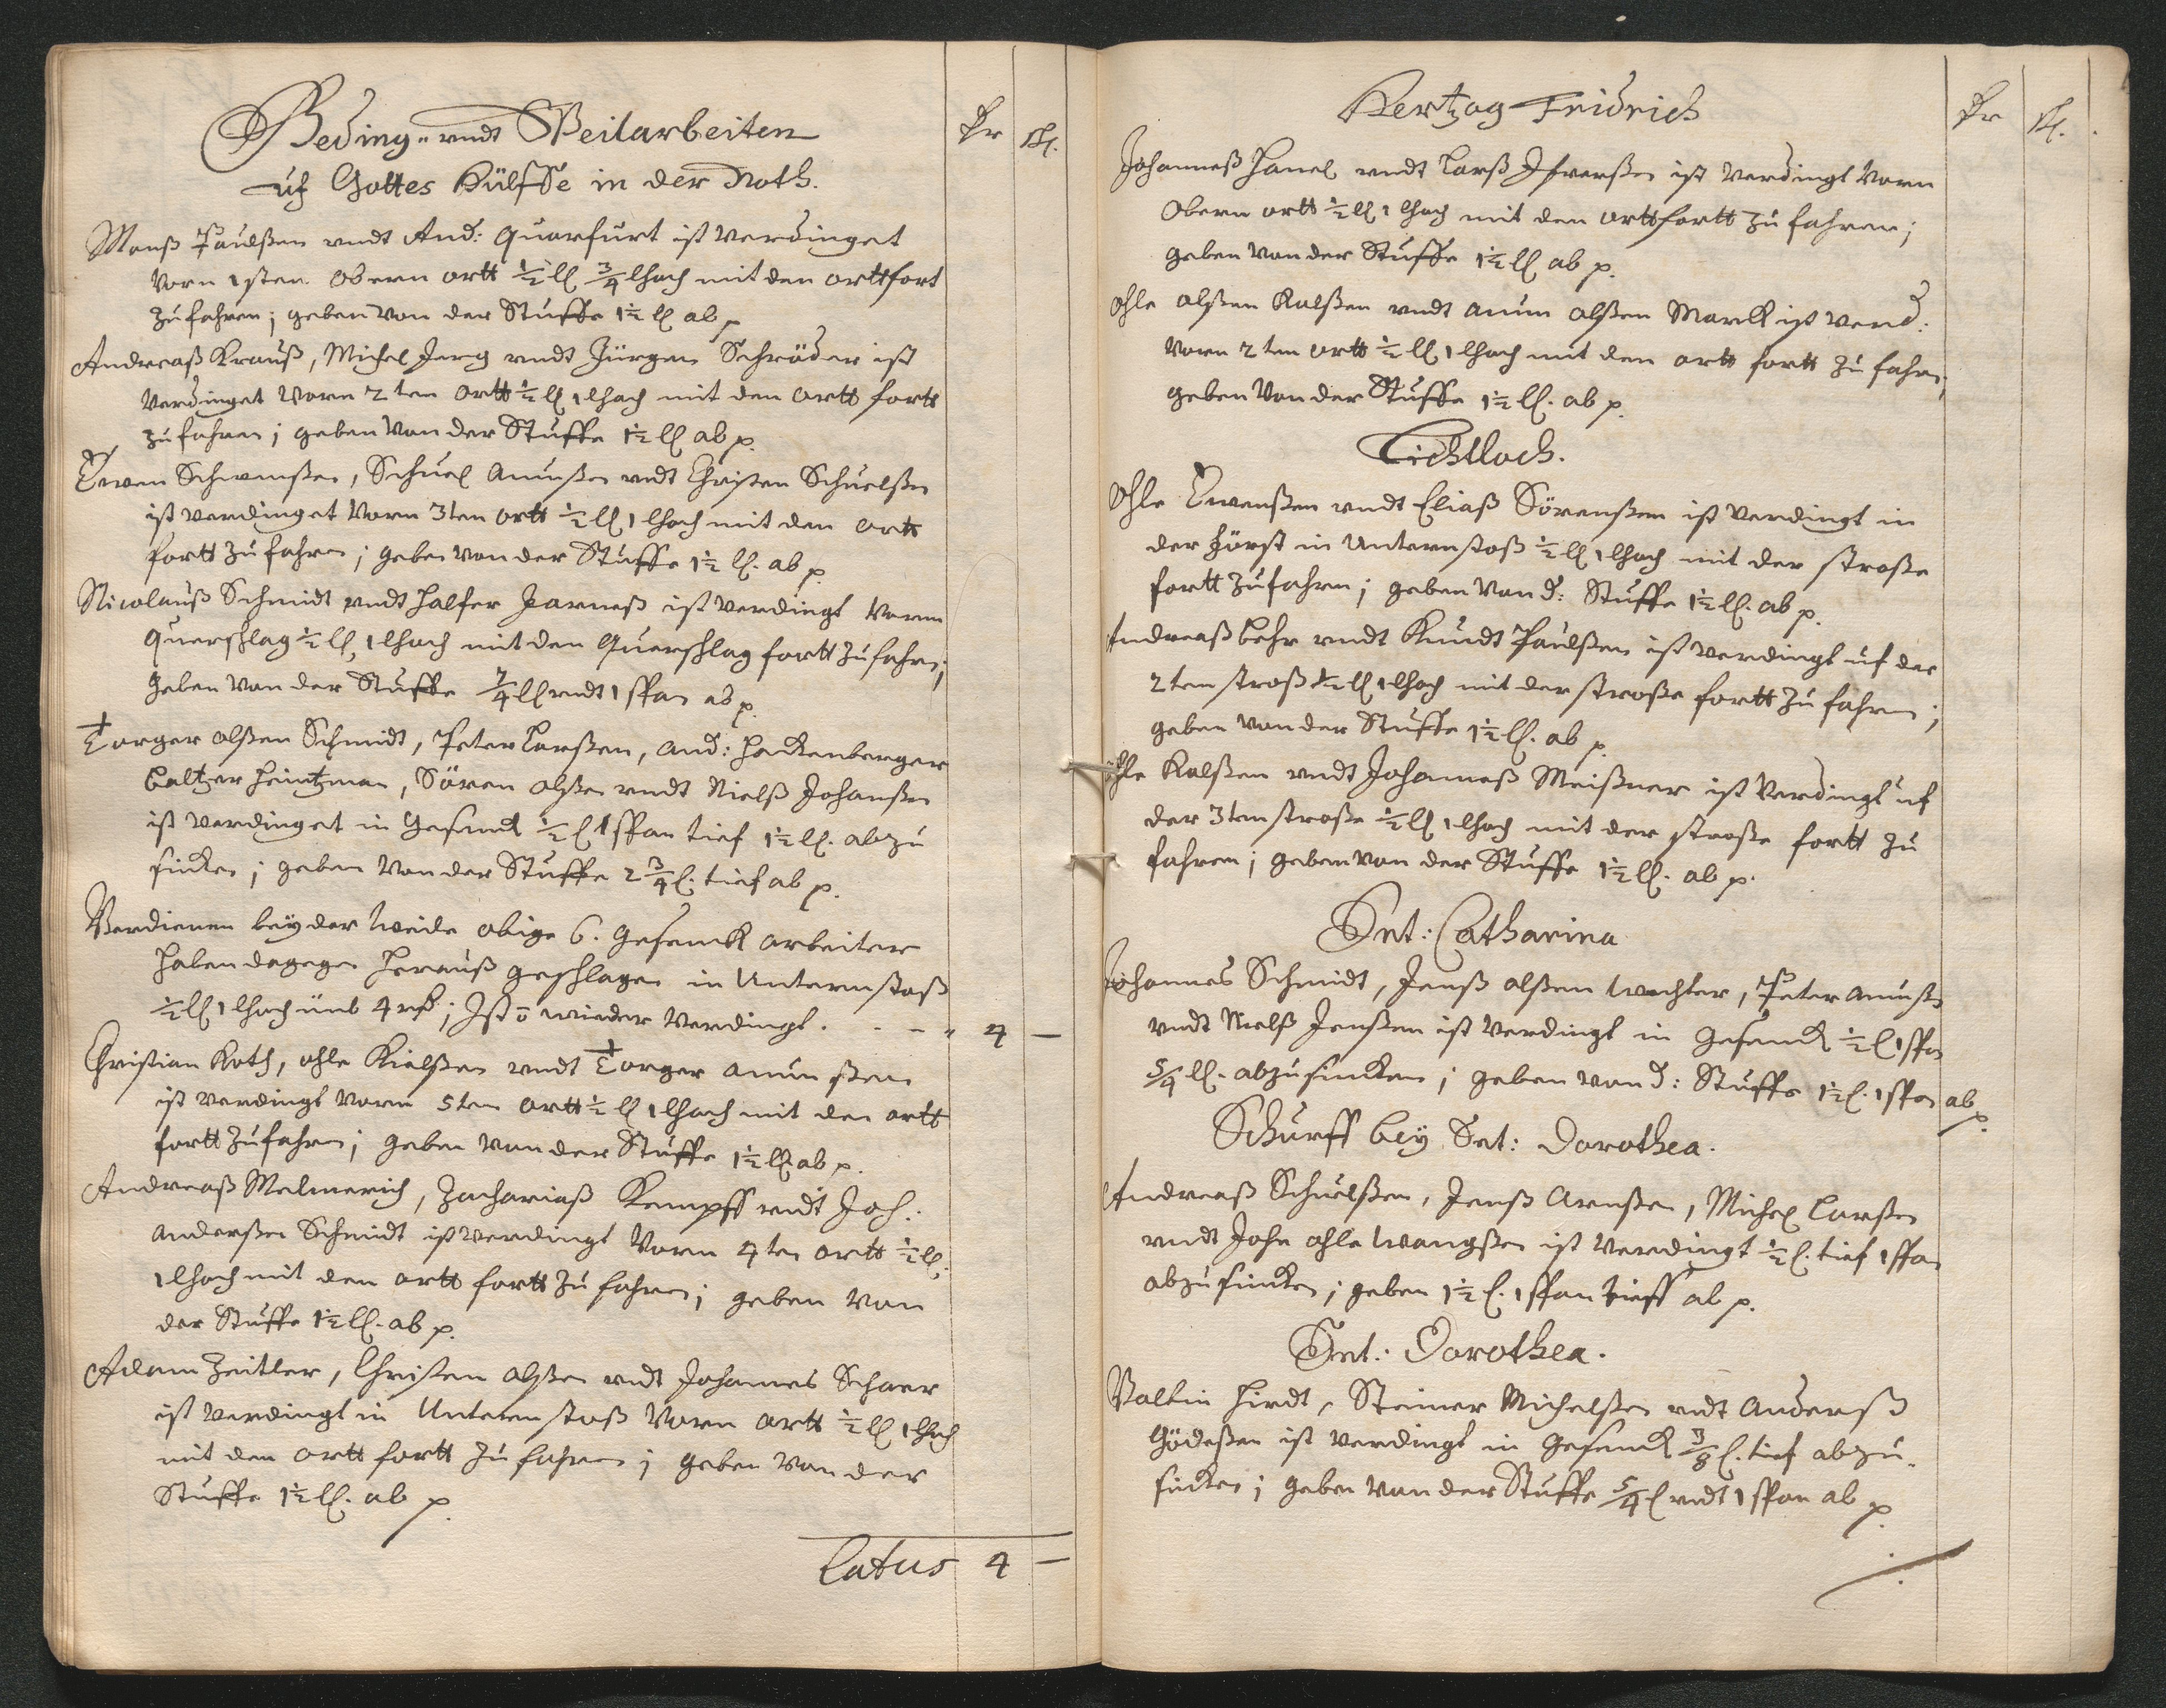 Beding- undt Weilarbeiten
uf Gottes Hülffe in der Noth.
Rr ßl.
Monß Paulßen undt And: Quarfurt ist verdinget
Vorn 1sten Obern ortt ½ ll ¾ lhoch mit den ortt fort
zufahren; geben von der Stuffe 1½ ll ab p.
Andreaß Krauß, Michel Jerg undt Jürgen Schröder ist
Verdinget Vorn 2ten Ortt ½ ll 1 lhoch mit den ortt fortt
zufahren; geben von der Stuffe 1½ ll ab p.
Twen Schwenßen, Schuel Amunßen undt Christen Schuelßen
ist verdinget Vorn 3ten ortt ½ ll 1 lhoch mit den ortt
fortt zufahren; geben von der Stuffe 1½ ll. ab p
Nicolauß Schmidt undt Halfer Jarneß ist verdingt Vorm
Querschlag ½ ll. 1 lhoch mit den Querschlag fortt zufahren;
geben von der Stuffe 7/4 ll undt 1 span ab p.
Torger olßen Schmidt, Peter Larßen, And: Hackenberger
Baltzer Heintzman, Sören olßen undt Nielß Johanßen
ist verdinget in Gesenck ½ l 1 span tief 1½ ll. abzu
sincken; geben von der Stuffe 2¾ l. tief ab p.
Verdienen bey der weile obige 6. gesenck arbeitere
haben dagegen herauß geschlagen in Unternstoß
½ ll 1 lhoch umb 4 rß; Ist ō wieder verdingt. - - " 4 —
Christian Roth, ohle Kielßen undt Torger Amunßen
ist verdingt Vorn 5ten ortt ½ ll 1 lhoch mit den ortt
fortt zufahren; geben von der Stuffe 1½ ll ab p.
Andreaß Melmerich, Zachariaß Kempff undt Joh:
Anderßen Schmidt ist verdingt Vorn 4ten ortt ½ ll.
1 lhoch mit den ortt fortt zufahren; geben von
der Stuffe 1½ ll. ab p.
Adam Zeitler, Christen olßen undt Johannes Schaer
ist verdingt in Unternstoß Vorn ortt ½ ll 1 lhoch
mit den ortt fortt zufahren; geben von der
Stuffe 1½ ll. ab p.
Latus 4 —
Hertzog Fridrich
Rr ßl.
Johanneß Hanel undt Larß Ifwerßen ist verdingt Vorn
Obern ortt ½ ll 1 lhoch mit den ortt fortt zu fahren;
geben von der Stuffe 1½ ll ab p.
Ohle olßen Kalßen undt Amun olßen Marck ist verd:
Vorn 2ten ortt ½ ll 1 lhoch mit den ortt fortt zu fahren;
geben von der Stuffe 1½ ll. ab p.
Lichtloch.
Ohle Twenßen undt Eliaß Sörenßen ist verdingt in
der Först in Unternstoß ½ ll 1 lhoch mit der stroße
fortt zufahren; geben von d: Stuffe 1½ ll. ab p.
Andreaß Behr undt Knudt Paulßen ist verdingt uf der
2ten stroß ½ ll 1 lhoch mit der stroße fortt zu fahren;
geben von der Stuffe 1½ ll. ab p.
Ohle Kalßen undt Johanneß Meißner ist verdingt uf
der 3ten stroße ½ ll 1 lhoch mit der stroße fortt zu
fahren; geben von der Stuffe 1½ ll. ab p.
Snt: Catharina
Johannes Schmidt, Jenß olßen wachter, Peter Amunßen
undt Nielß Jenßen ist verdingt in Gesenck ½ l 1 span
5/4 ll. abzusincken; geben von d: Stuffe 1½ l. 1 span ab p.
Schurff bey Snt: Dorothea.
Andreaß Schuelßen, Jenß Arnßen, Michel Larßen
undt John ohle wangßen ist verdingt ½ l. tief 1 span
abzusincken; geben 1½ l. 1 span tieff ab p.
Snt: Dorothea.
Valtin Hirdt, Steiner Michelßen undt Anderß
Gödeßen ist verdingt in Gesenck 3/8 l. tief abzu-
sincken; geben von der Stuffe 5/4 l undt 1 span ab p